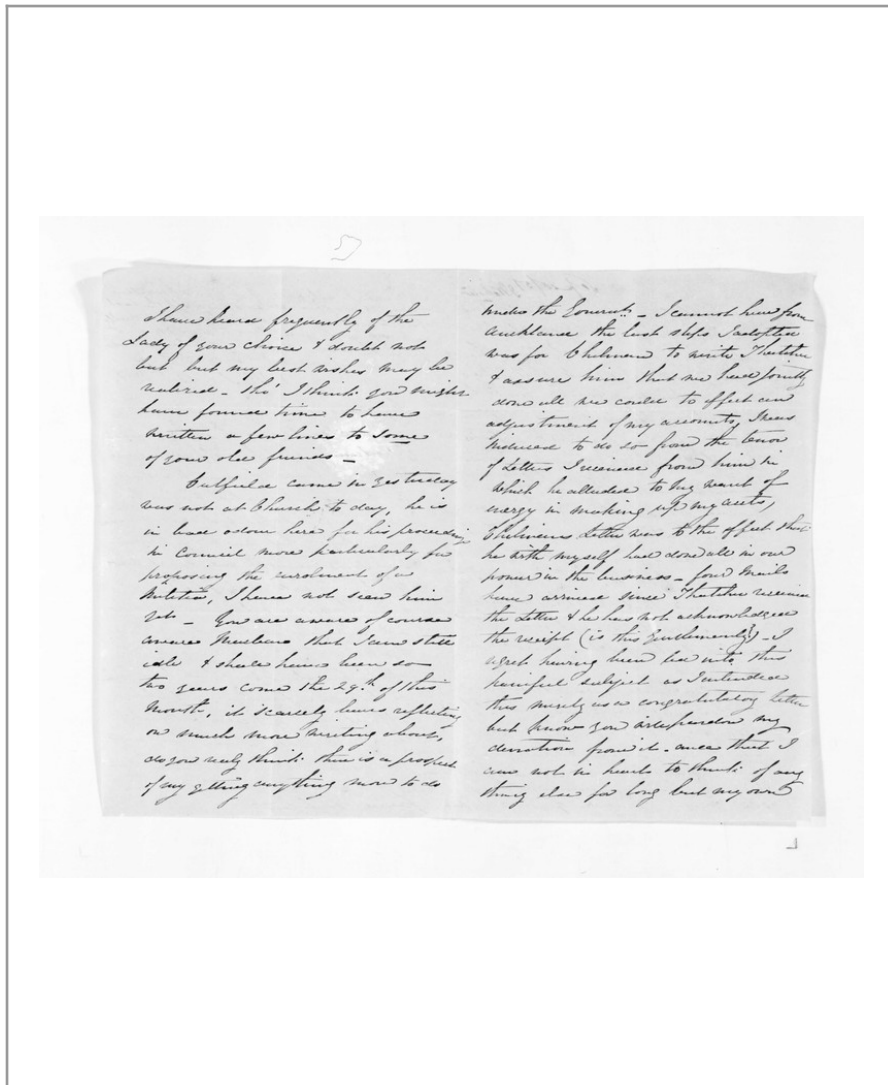 I have heard frequently of the
Lady of your choice & doubt not
but but my best wishes may be
realized - tho' I think you might
have found time to have
written a few lines to some
of your old friends -
Cutfield came in yesterday
was not at Church to day, he is
in bad odour here for his proceedings
in Council more particularly for
proposing the enrolment of a
Militia, I have not seen him
yet - You are aware of course
aware that I am still
idle & shall have been so
two years come the 29th of this
Month, it scarcely bears reflecting
on much more writing about,
do you really think there is a prospect
of my getting anything more to do
under the Governt. - I cannot hear from
Auckland the last steps I adopted
was for Chilman to write Thatcher
& assure him that we had jointly
done all we could to effect an
adjustment of my accounts, I was
induced to do so from the tenor
of Letters I received from him in
which he alluded to my want of
energy in making up my accts,
Chilmans Letter was to the effect that
he with myself had done all in our
power in the business - four Mails
have arrived since Thatcher received
the Letter & he has not acknowledged
the receipt (is this Gentlemanly?) - I
regret having been led into this
painful subject as I intended
this merely as a congratulatory letter
but know you will pardon my
deviation from it. and that I
am not in heart to think of any
thing else for long but my own